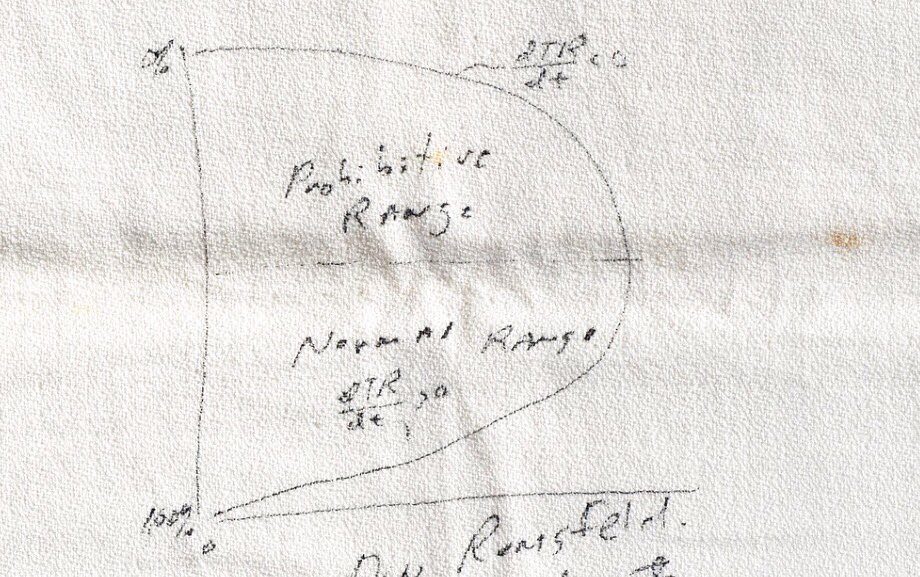 0%
dTR
dt
<0
Prohibitive
Range
Normal Range
dTR
dt
>0
100%
0
Don Rumsfeld.